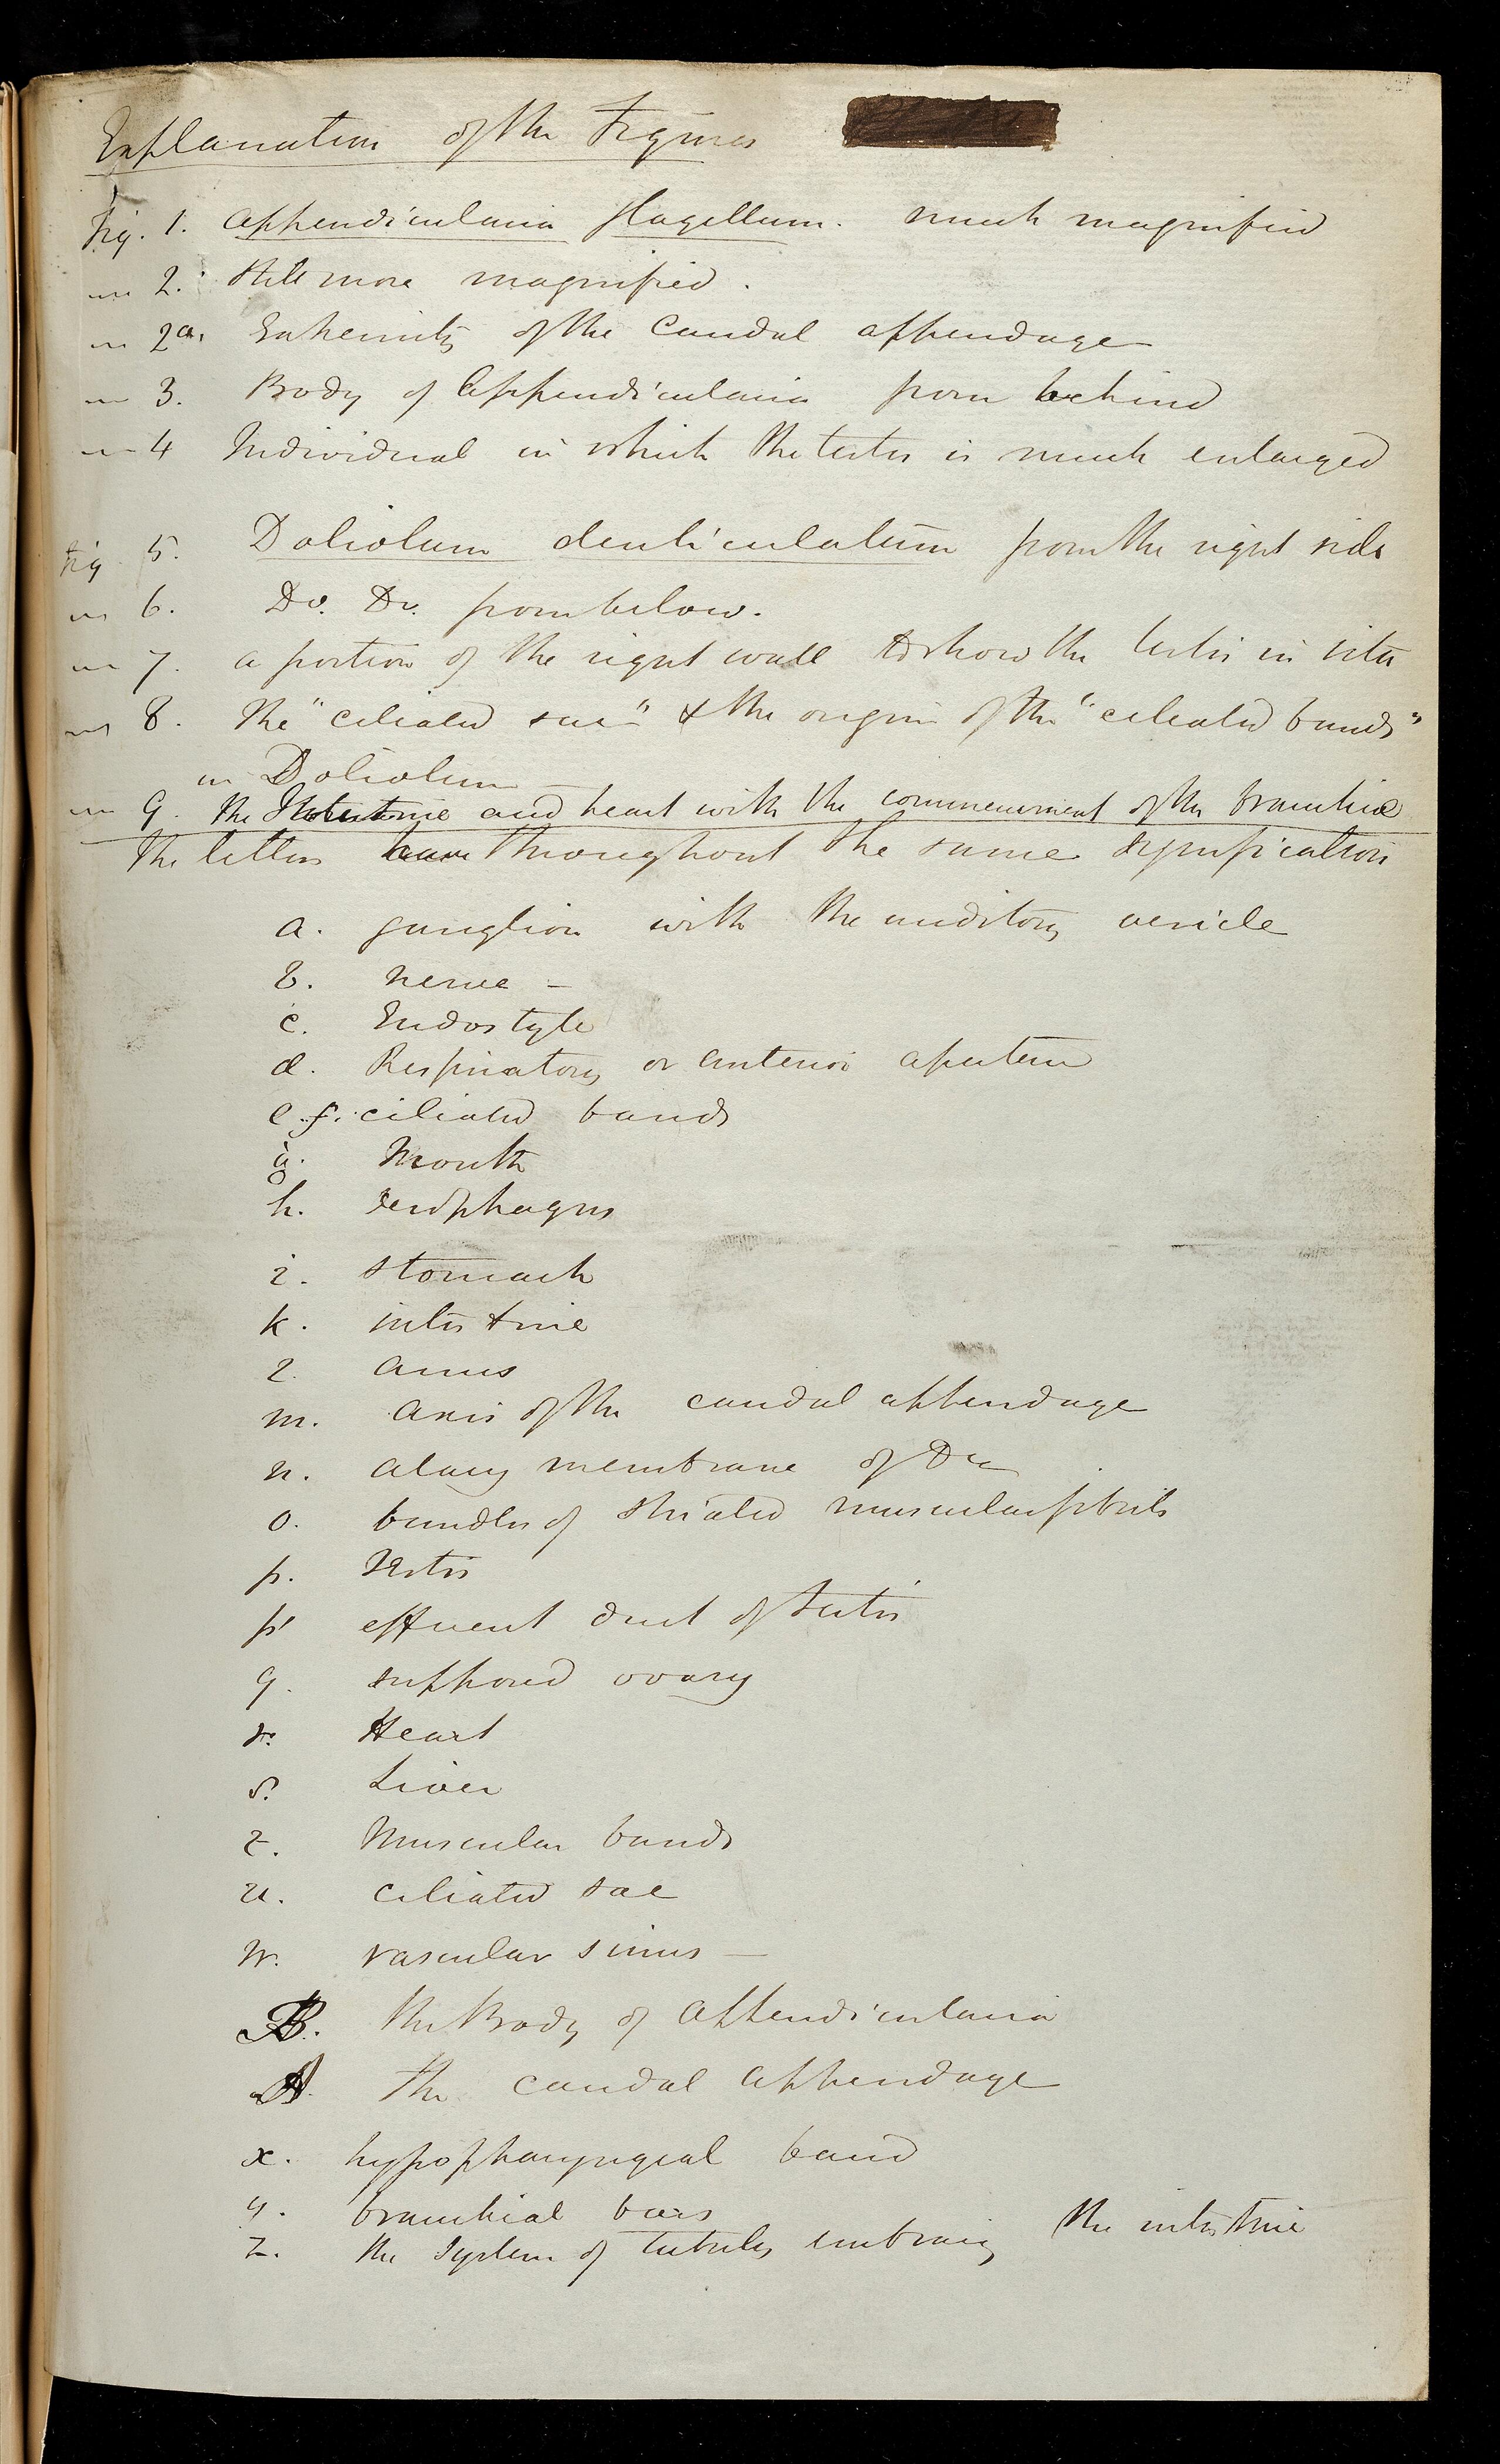 Explanation of the Figures
Fig. 1. Appendicularia flagellum. much magnified
" 2. still more magnified.
" 2a. Extremity of the Caudal appendage
" 3. Body of Appendicularia from behind
" 4 Individual in which the testis is much enlarged
Fig 5. Doliolum denticulatum from the right side
" 6. Do. Do. from below.
" 7. a portion of the right wall to show the testis in situ
" 8. the "ciliated sac" & the origin of the "ciliated bands"
in Doliolum
" 9. the Intestine and heart with the commencement of the branchiæ
The letters have throughout the same signification
a. ganglion with the auditory vesicle
b. nerve –
c. Endostyle
d. Respiratory or anterior aperture
e.f. ciliated bands
g. Mouth
h. œsophagus
i. stomach
k. intestine
l. anus
m. axis of the caudal appendage
n. alary membrane of Do
o. bundles of striated muscular fibrils
p. Testis
p' efferent duct of testis
q. supposed ovary
r. Heart
s. Liver
t. Muscular bands
u. ciliated sac
w. vascular sinus –
B. the Body of Appendicularia
A. The caudal appendage
x. hypopharyngeal band
y. branchial bars
z. the system of tubules embracing the intestine